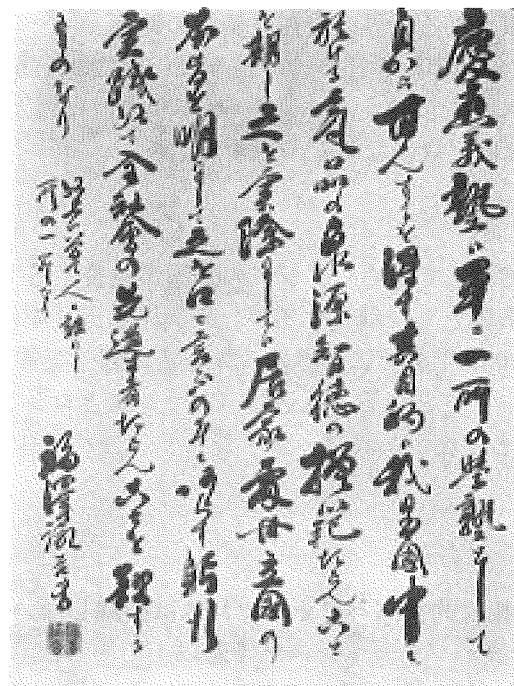 慶應義塾ハ単ニ一所の學塾として
自から甘んずるを得ず其目的ハ我日本國中ニ
於ける氣品の泉源智徳の模範たらんことを
期し之を實際にしてハ居家處世立國の
本旨を明にして之を口に言ふのみにあらず躬行
實踐以て全社會の先導者たらんことを欲する
ものなり
以上は曽て人に語りし
所の一節なり
福澤諭吉書